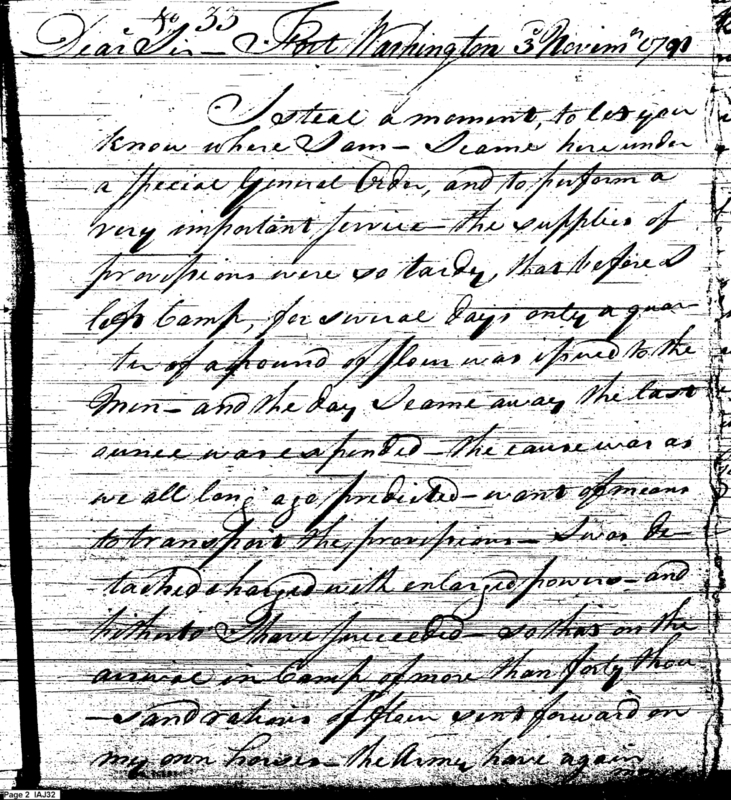 No 33
Dear Sir — Fort Washington 3d Novemr 1791
I steal a moment, to let you
know where I am — I came here under
a special General Order, and to perform a
very important service — the supplies of
provisions were so tardy, that before I
left Camp, for several days only a quar-
ter of a pound of flour was issued to the
Men — and the day I came away the last
ounce was expended — the cause was as
we all long ago predicted — want of means
to transport the provisions — I was de-
tached charged with enlarged powers — and
hitherto I have succeeded — so that on the
arrival in Camp of more than forty thou
-sand rations of flour sent forward on
my own horses — the Army have again
Page 2 IAJ32